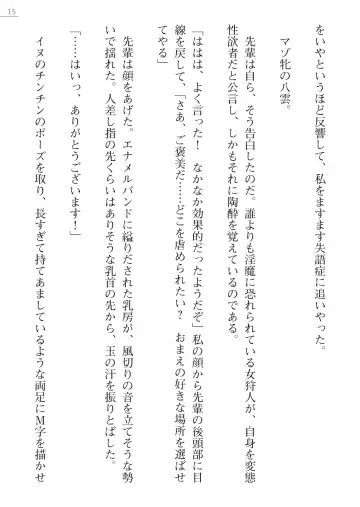 15
をいやというほど反響して、私をますます失語症に追いやった。
マゾ牝の八雲。
先輩は自ら、そう告白したのだ。誰よりも淫魔に恐れられている女狩人が、自身を変態
性欲者だと公言し、しかもそれに陶酔を覚えているのである。
「ははは、よく言った！　なかなか効果的だったようだぞ」私の顔から先輩の後頭部に目
線を戻して、「さあ、ご褒美だ……どこを虐められたい？　おまえの好きな場所を選ばせ
てやる」
先輩は顔をあげた。エナメルバンドに縊りだされた乳房が、風切りの音を立てそうな勢
いで揺れた。人差し指の先くらいはありそうな乳首の先から、玉の汗を振りとばした。
「……はいっ、ありがとうございます！」
イヌのチンチンのポーズを取り、長すぎて持てあましているような両足にM字を描かせ